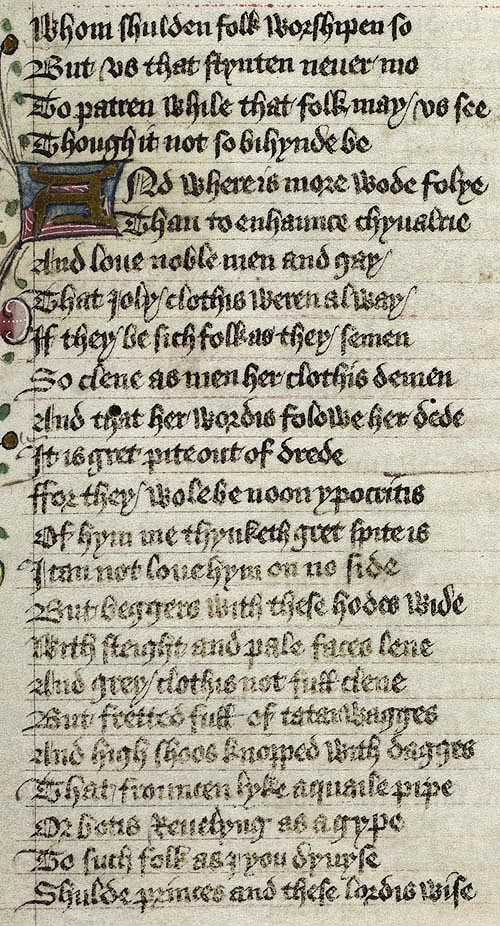 Whom shulden folk worshipen so
But vs that stynten neuer mo
To patren while that folk may vs see
Though it not so bihynde be
And where is more wode folye
Than to enhaunce chyualrie
And loue noble men and gay
That ioly clothis weren alway
If they be sich folk as they semen
So clene as men her clothis demen
And that her wordis folowe her dede
It is gret pite out of drede
ffor they wole be noon ypocritis
Of hym me thynketh gret spite is
I can not loue hym on no side
But beggers with these hodes wide
With sleight and pale faces lene
And grey clothis not full clene
But fretted full of tatarwagges
And high shoos knopped with dagges
That frouncen lyke a quaile pipe
Or botis reuelyng as a gype
To such folk as I you dyuyse
Shulde princes and these lordis wise